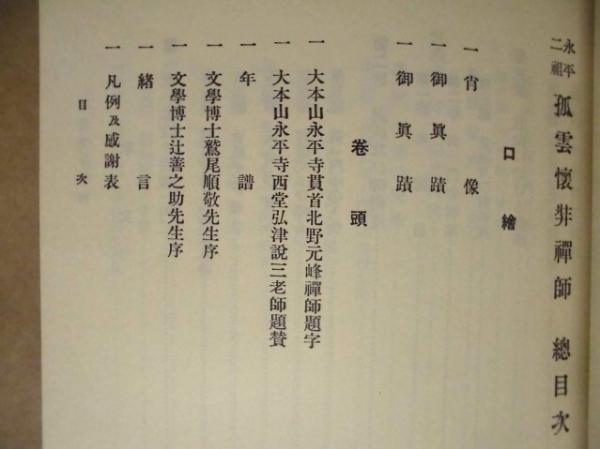 永平二祖 孤雲懷弉禪師 總目次
口繪
一 肖像
一 御眞蹟
一 御眞蹟
卷頭
一 大本山永平寺貫首北野元峰禪師題字
一 大本山永平寺西堂弘津說三老師題賛
一 年譜
一 文學博士鷲尾順敬先生序
一 文學博士辻善之助先生序
一 緖言
一 凡例及感謝表
目次